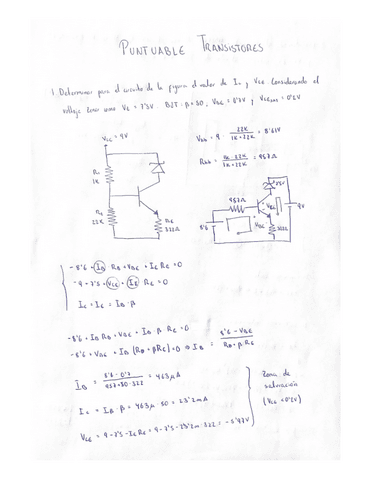 PUNTUABLE TRANSISTORES
1. Determinar para el circuito de la figura el valor de IB y VCE. Considerando el
voltaje Zener como VZ = 7'5V. BJT: β=50; VBE = 0'7V y VCEsat = 0'2V
VCC = 9V
R1
1K
R2
22K
RE
322Ω
VBB = 9 · 22K / 1K+22K = 8'61V
RBB = 1K·22K / 1K+22K = 957Ω
957Ω
8'6
VBE
VCE
7'5V
9V
322Ω
-8'6 + IB RB + VBE + IE RE = 0
-9 - 7'5 + VCE + IE RE = 0
IE = IC = IB · β
-8'6 + IB RB + VBE + IB β RE = 0
-8'6 + VBE + IB (RB + βRE) = 0 ⇒ IB = 8'6 - VBE / RB + β·RE
IB = 8'6 - 0'7 / 957 + 50·322 = 463μA
IC = IB · β = 463μ · 50 = 23'2mA
VCE = 9 - 7'5 - IE RE = 9 - 7'5 - 23'2m · 322 = -5'97V
Zona de
saturación
(VCE = 0'2V)